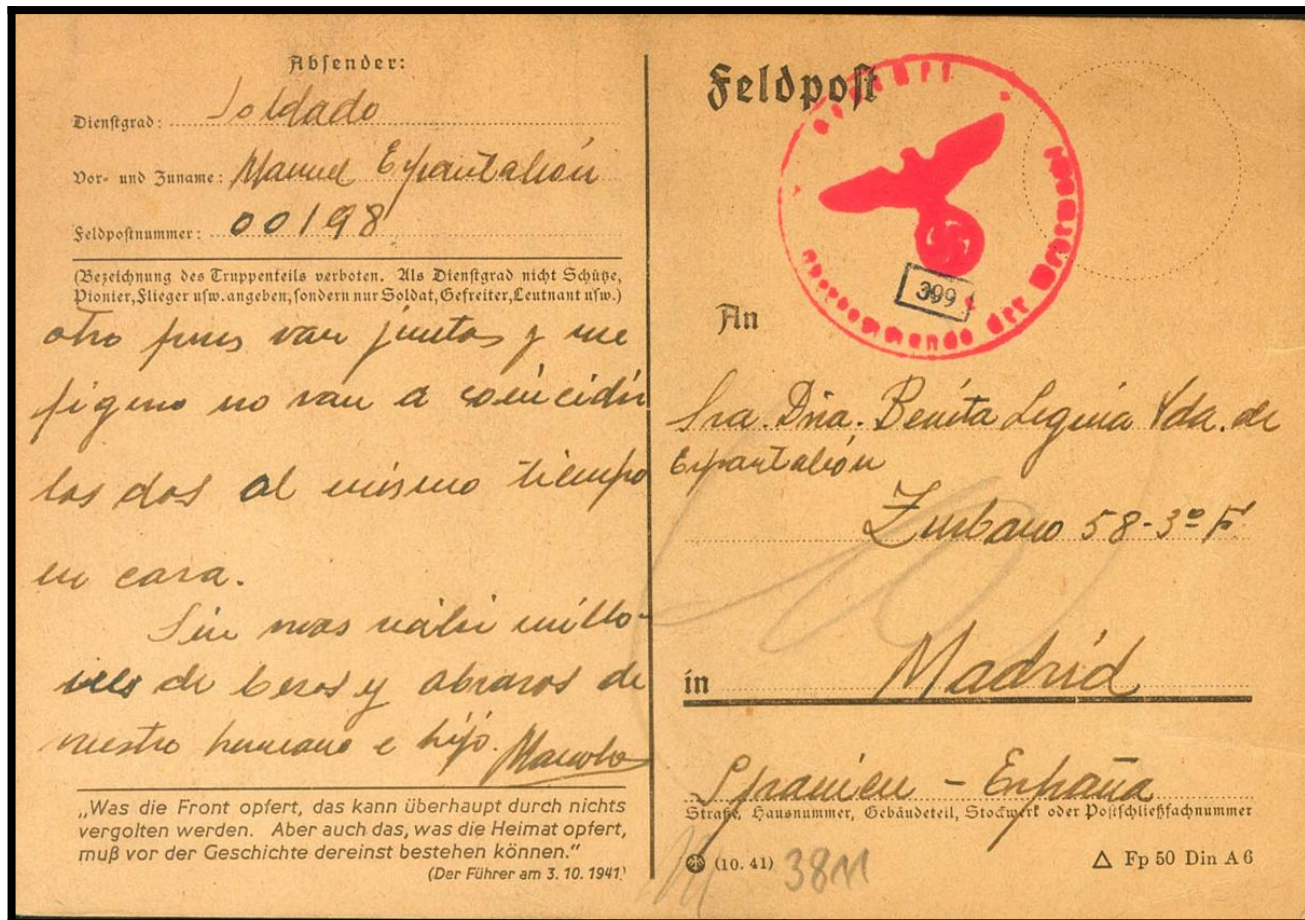 Absender:
Dienstgrad: Soldado
Vor- und Zuname: Manuel Espantaleón
Feldpostnummer: 00198
(Bezeichnung des Truppenteils verboten. Als Dienstgrad nicht Schütze,
Pionier, Flieger usw. angeben, sondern nur Soldat, Gefreiter, Leutnant usw.)
otro pues van juntos y me
figuro no van a coincidir
los dos al mismo tiempo
en casa.
Sin mas recibir millo-
nes de besos y abrazos de
vuestro hermano e hijo. Manolo
„Was die Front opfert, das kann überhaupt durch nichts
vergolten werden. Aber auch das, was die Heimat opfert,
muß vor der Geschichte dereinst bestehen können."
(Der Führer am 3. 10. 1941)
Feldpost
Oberkommando der Wehrmacht
399
An
Sra. Dña. Benita Leguia Vda. de
Espantaleón
Zurbano 58-3º
in Madrid
Spanien - España
Straße, Hausnummer, Gebäudeteil, Stockwerk oder Postschließfachnummer
(10. 41) 38
Fp 50 Din A 6